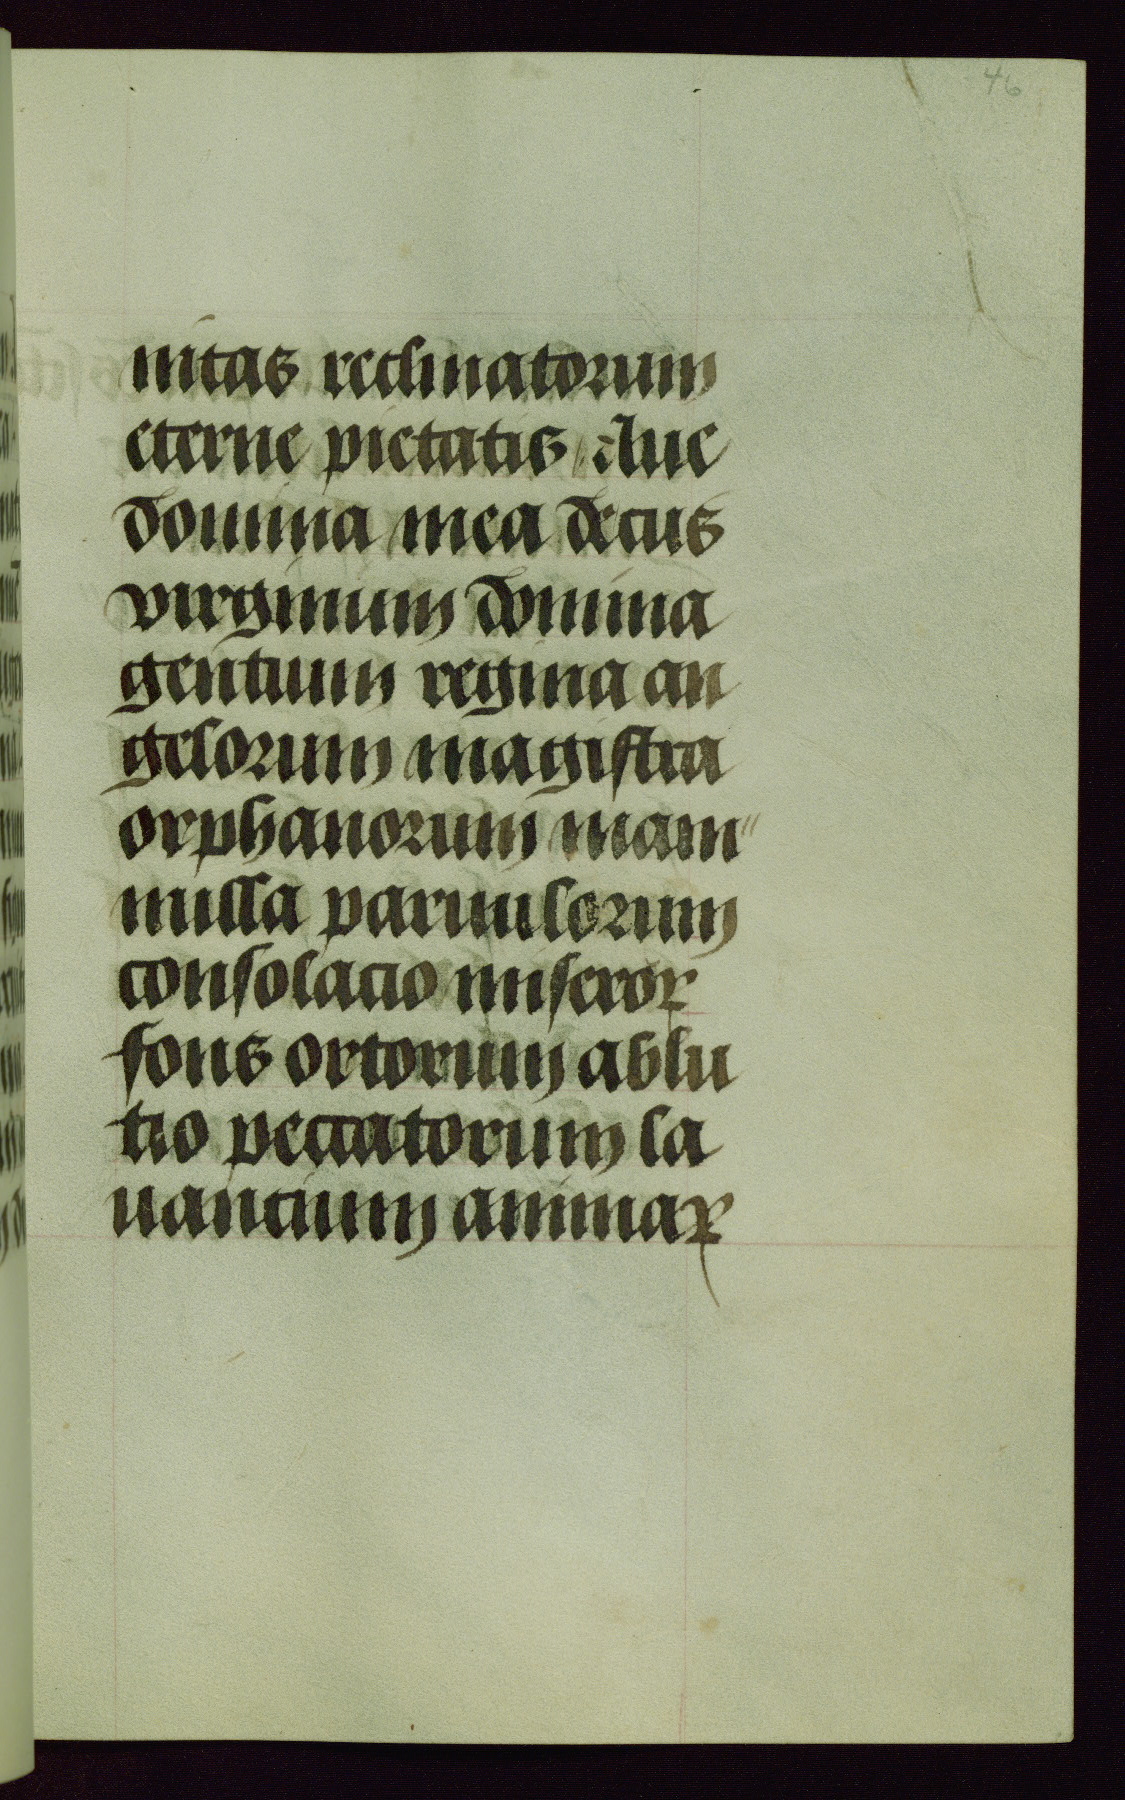 46
nitas reclinatorum
eterne pietatis Aue
domina mea decus
virginium domina
gentium regina an
gelorum magistra
orphanorum mam"
milla paruulorum
consolacio miseroꝝ
fons ortorum ablu
tio peccatorum la
uancium animaꝝ